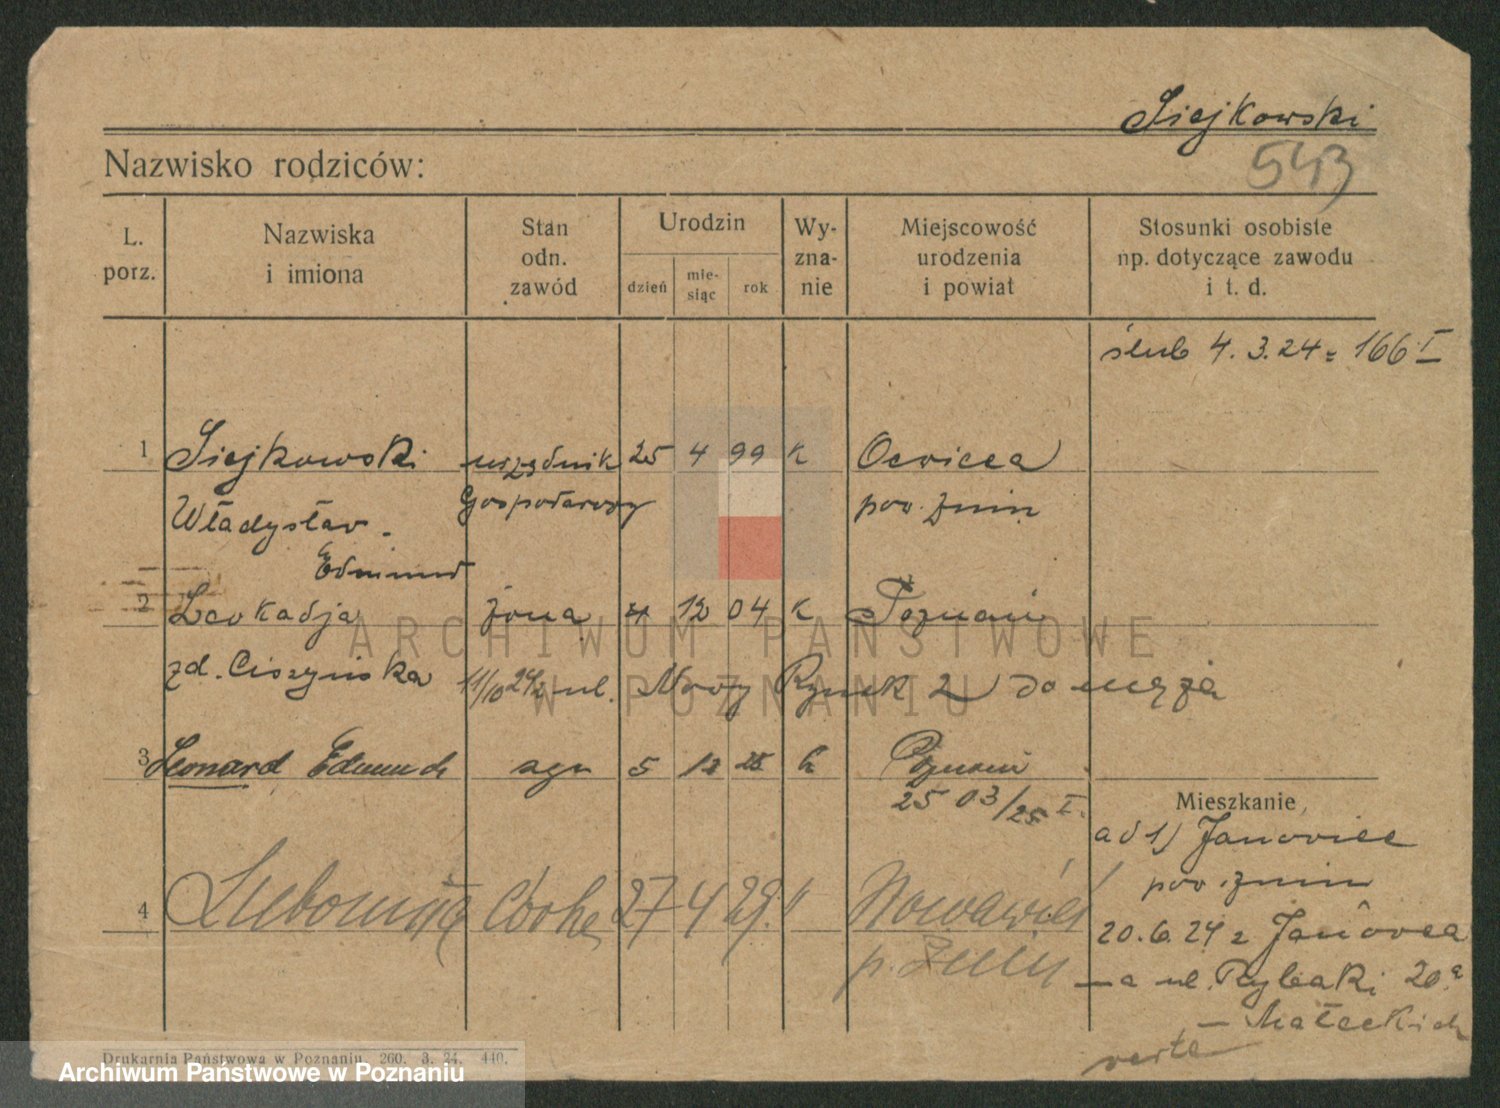 Siejkowski
Nazwisko rodziców:
543
L. porz.
Nazwiska i imiona
Stan odn. zawód
Urodzin
dzień
mie-siąc
rok
Wy-zna-nie
Miejscowość urodzenia i powiat
Stosunki osobiste np. dotyczące zawodu i t. d.
ślub 4. 3. 24 = 166 I
1 Siejkowski urzędnik 25 4 99 k
Władysław Gospodarczy pow. Żnin
Edmund
2 Leokadja żona 4 12 04 k Poznań
ARCHIWUM PAŃSTWOWE
zd. Ciszyńska 11/10 24 ul. Nowy Rynek 2 do męża
W POZNANIU
3 Leonard Edmund syn 5 12 25 k Poznań
25 03/25 I.
Mieszkanie
ad 1) Janowiec
pow. Żnin
4 Lubomiła Córka 27 4 29. k Nowawieś
p. Żnin
20. 6. 24 z Janówca
– a ul. Rybaki 20a
– Małeckich
verte
Drukarnia Państwowa w Poznaniu 260. 3. 24. 440.
Archiwum Państwowe w Poznaniu